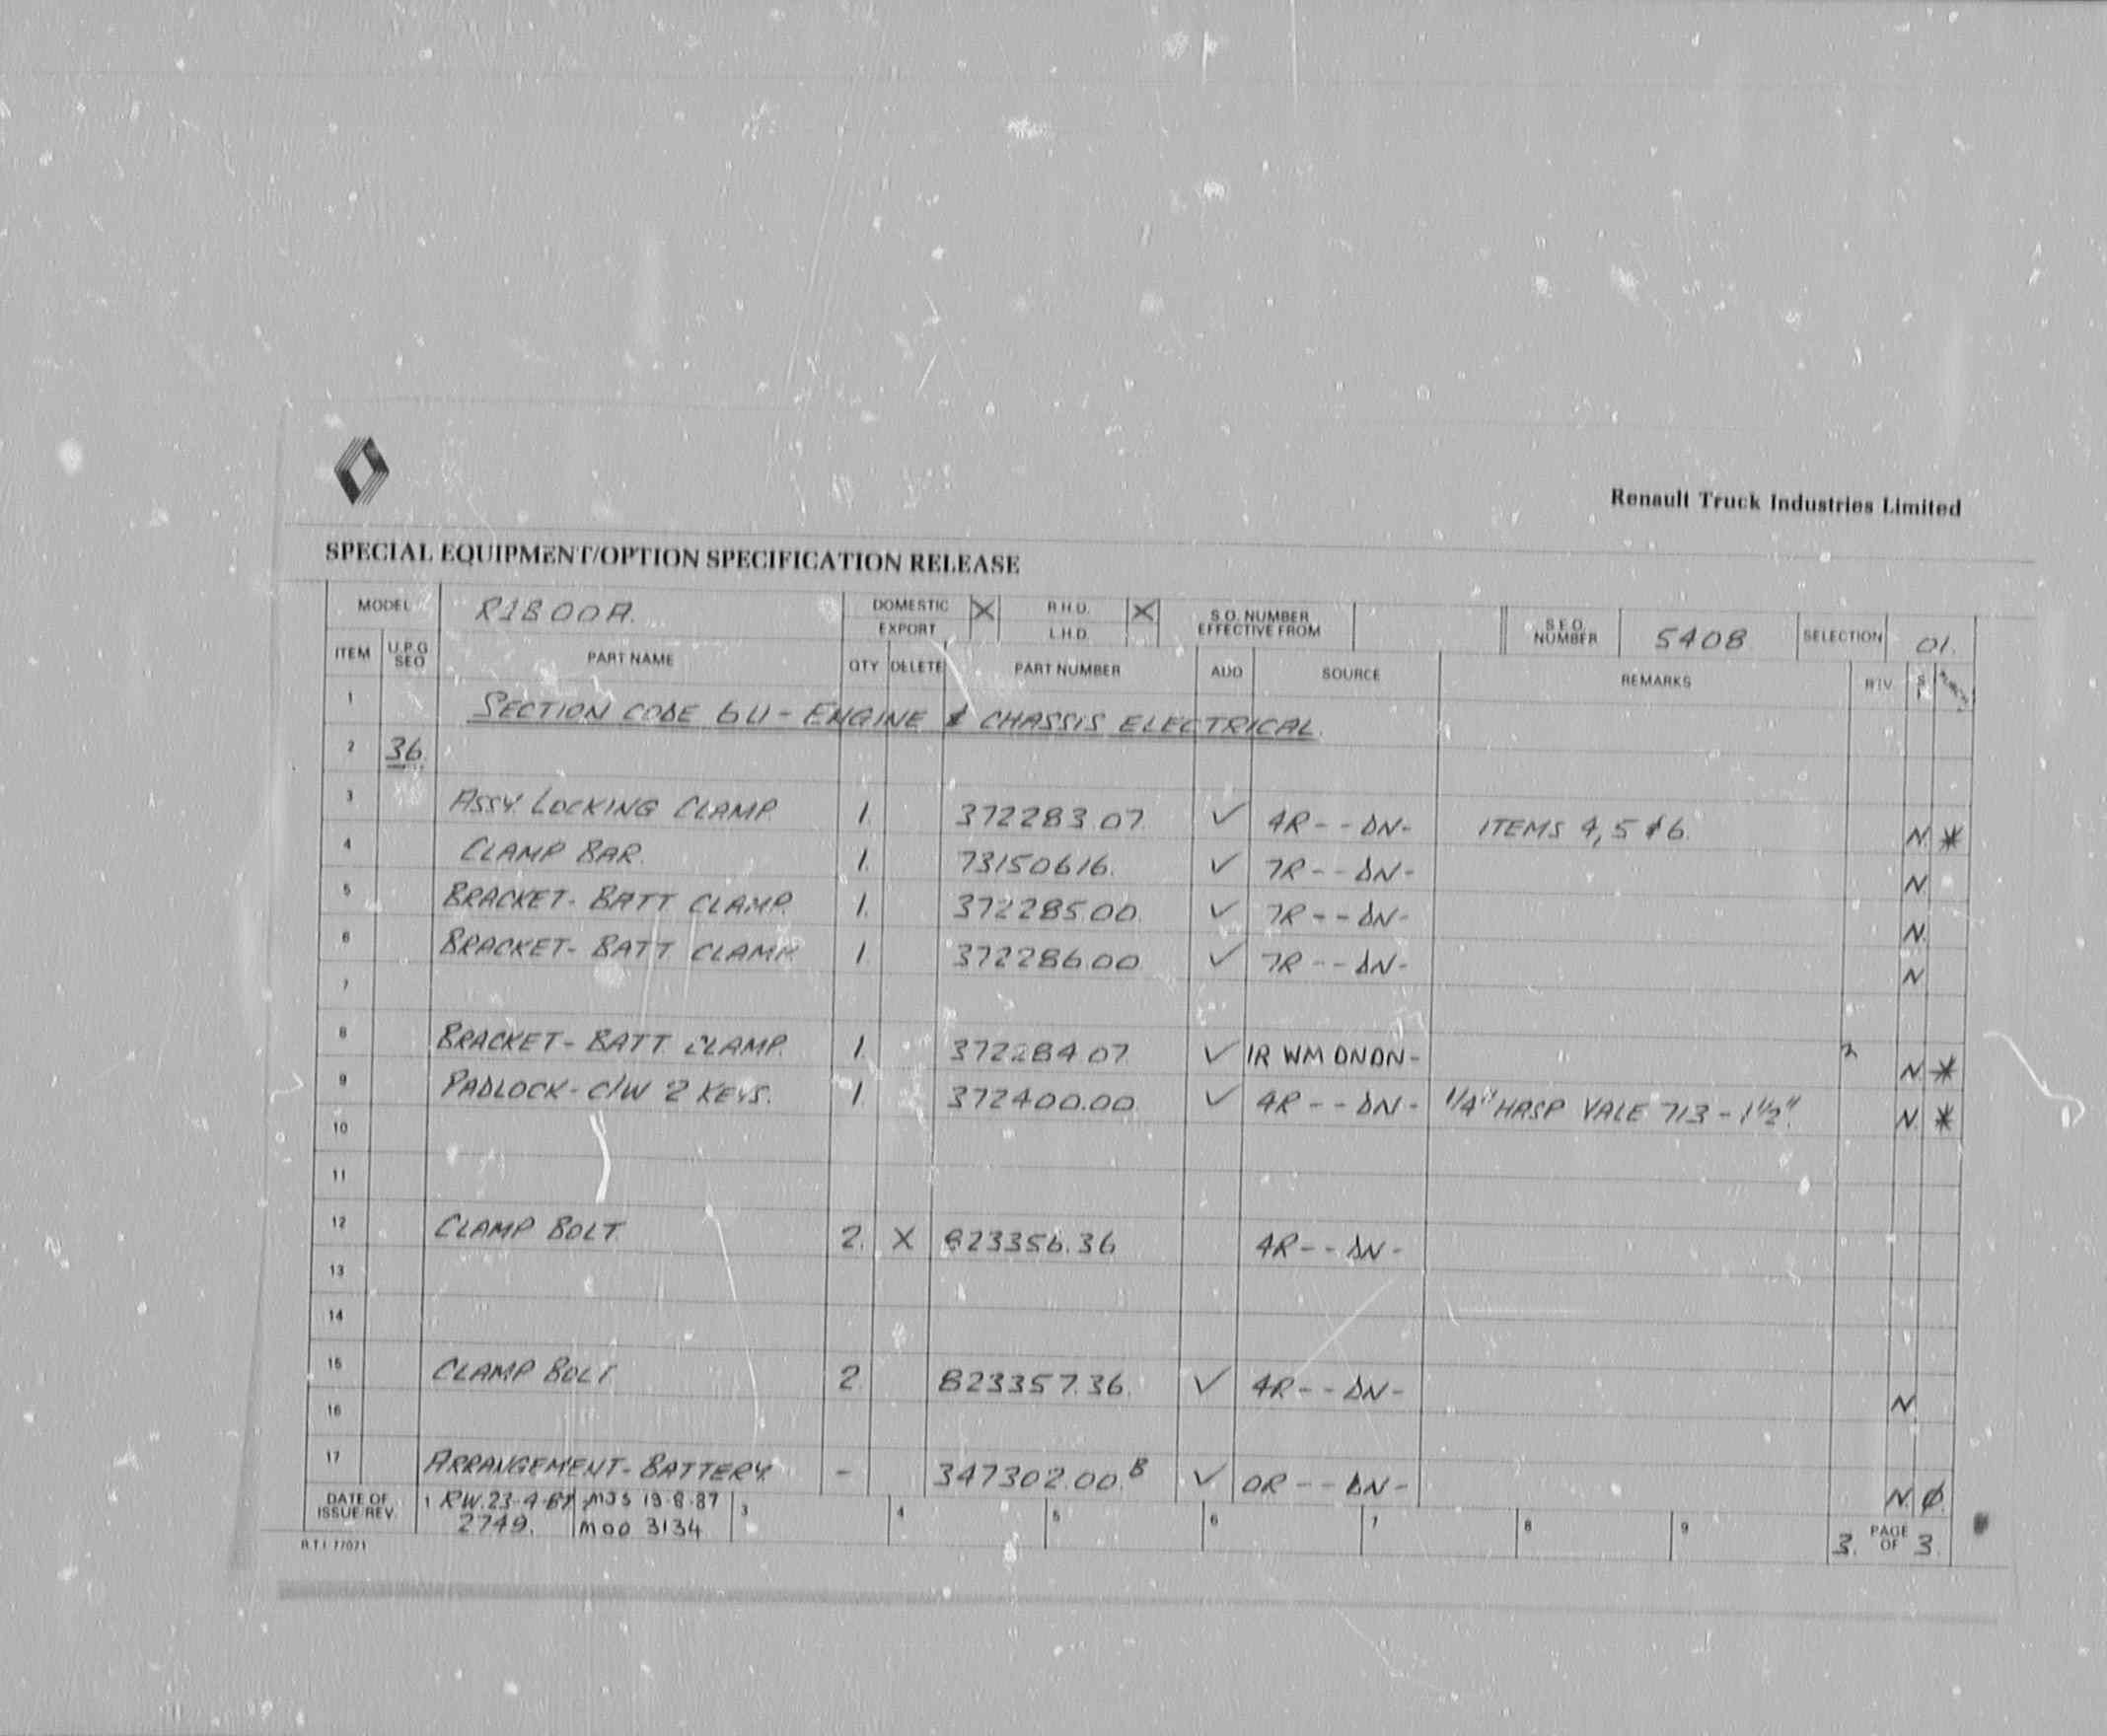 Renault Truck Industries Limited
SPECIAL EQUIPMENT/OPTION SPECIFICATION RELEASE
MODEL R1800A. DOMESTIC X R.H.D. X S.O. NUMBER S.E.O. 5408 SELECTION 01.
EXPORT L.H.D. EFFECTIVE FROM NUMBER
ITEM U.P.G SEQ PART NAME QTY DELETE PART NUMBER ADD SOURCE REMARKS
1 SECTION CODE 6U - ENGINE & CHASSIS ELECTRICAL.
2 36.
3 ASSY. LOCKING CLAMP. 1. 372283.07. ✓ 4R - - DN - ITEMS 4, 5 & 6. N. *
4 CLAMP BAR. 1. 73150616. ✓ 7R - - DN - N
5 BRACKET - BATT CLAMP. 1. 372285.00. ✓ 7R - - DN - N.
6 BRACKET - BATT CLAMP. 1 372286.00. ✓ 7R - - DN - N
7
8 BRACKET - BATT. CLAMP. 1. 372284.07. ✓ 1R WM DNDN - 2 N. *
9 PADLOCK - C/W 2 KEYS. 1. 372400.00. ✓ 4R - - DN - 1/4" HASP YALE 713 - 1 1/2". N. *
10
11
12 CLAMP BOLT. 2. X 823356.36 4R - - DN -
13
14
15 CLAMP BOLT 2 823357.36. ✓ 4R - - DN - N
16
17 ARRANGEMENT - BATTERY. - 347302.00.B ✓ 0R - - DN - N. Ø.
DATE OF 1 RW. 23-4-87 MJS 19-8-87 3 4 5 6 7 8 9 3. PAGE 3.
ISSUE/REV. 2749. MOD 3134 OF
R.T.I. 77071